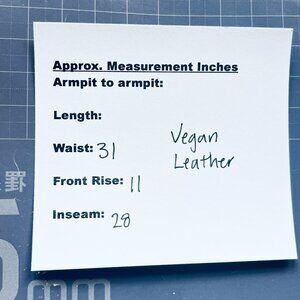 Approx. Measurement Inches
Armpit to armpit:
Length:
Waist: 31
Vegan
Leather
Front Rise: 11
Inseam: 28
5mm